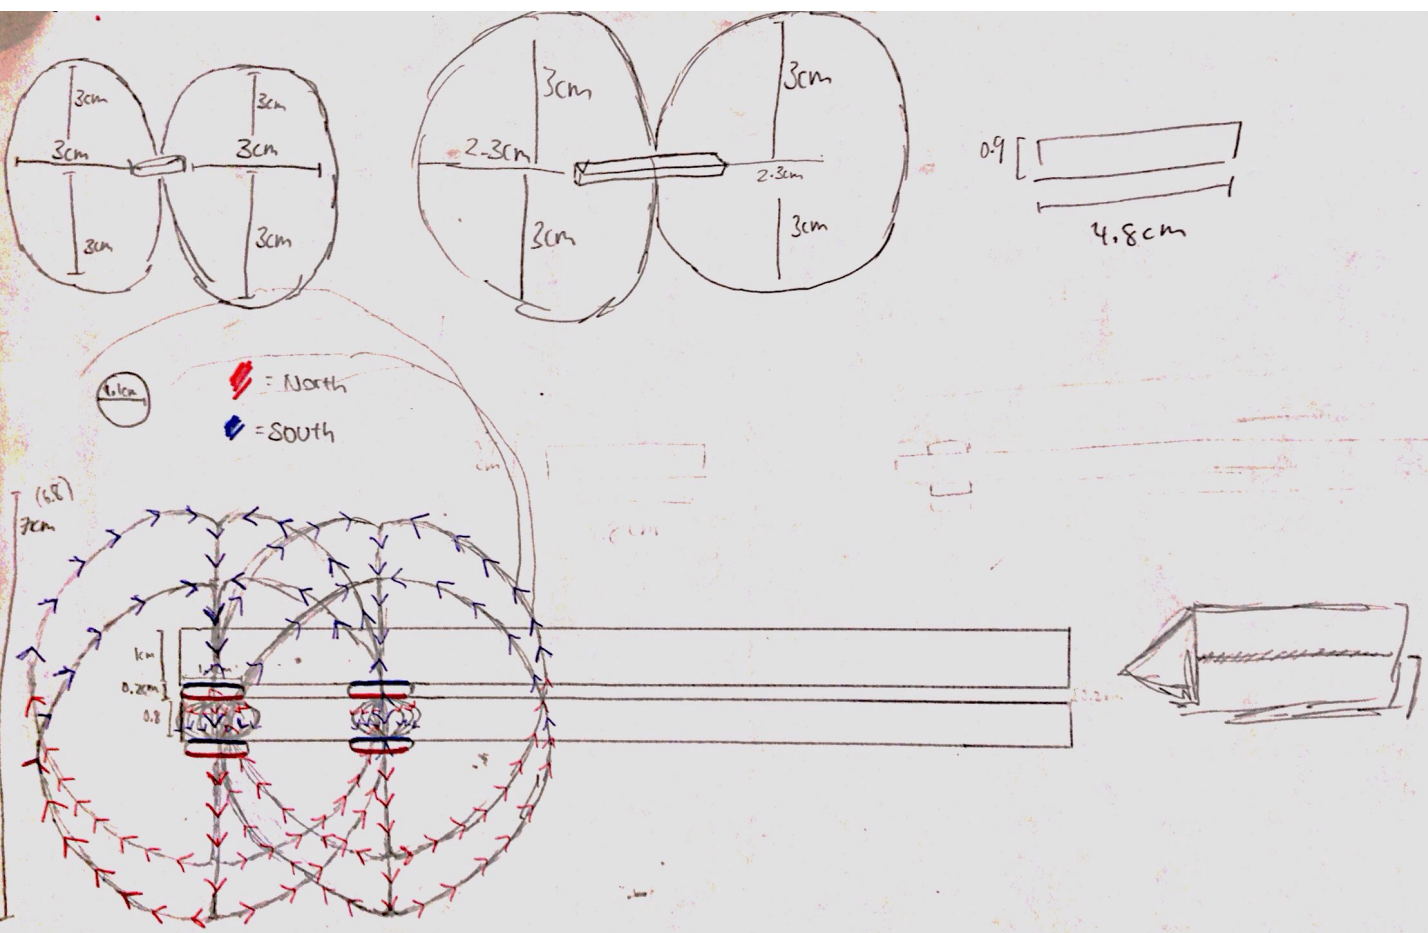 3cm
3cm
3cm
3cm
3cm
3cm
3cm
3cm
2.3cm
2.3cm
3cm
3cm
0.9
4.8cm
1.1cm
= North
= South
(6.8)
7cm
1cm
0.2cm
0.8
cm
0.2cm